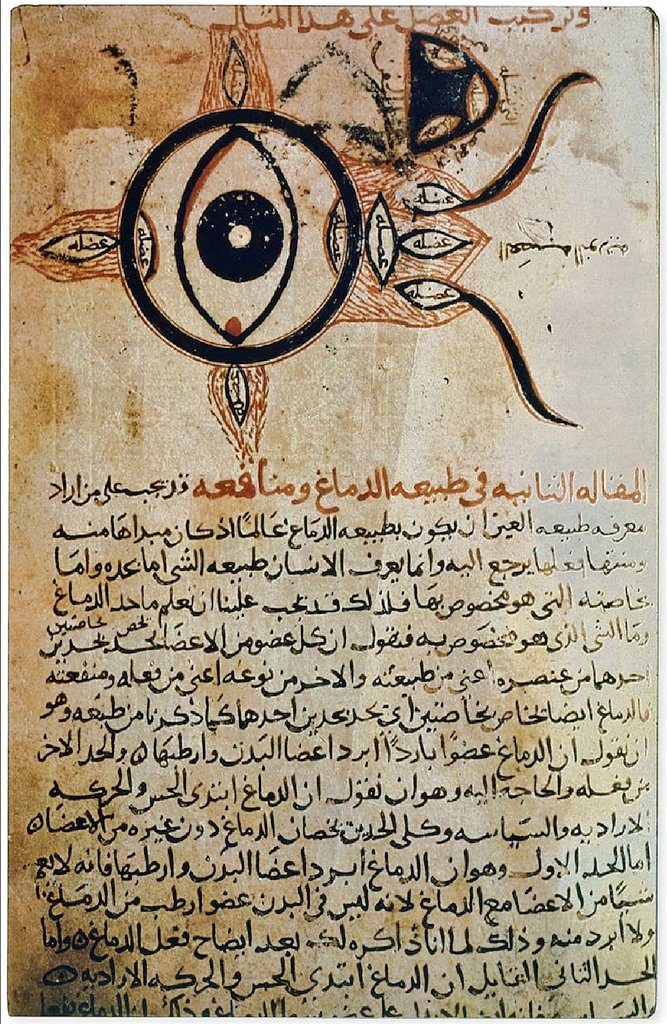 وتركيب العضل على هذا المثال
عضله
عضله
عضله
عضله
عضله
عضله
عضله
عضله
عضله
المقاله الثانيه في طبيعه الدماغ ومنافعه قد يجب على من اراد
معرفه طبيعه العين ان يكون بطبيعه الدماغ عالمًا اذ كان مبداها منه
ومنتها فعلها يرجع اليه وانما يعرف الانسان طبيعه الشي اما بحده واما
بخاصته التي هو مخصوص بها فلذلك قد يجب علينا ان نعلم ما حد الدماغ
وما الشي الذي هو مخصوص به فنقول ان كل عضو من الاعضا يحد بحدين
احدهما من عنصره اعني من طبيعته والاخر من نوعه اعني من فعله ومنفعته
فالدماغ ايضا بخاصتين اي يحد بحدين احدهما كما ذكرنا من طبعه وهو
ان نقول ان الدماغ عضوًا باردًا ابرد اعضا البدن وارطبها والحد الاخر
من فعله والحاجه اليه وهو ان نقول ان الدماغ ابتدى الحس والحركه
الاراديه والسياسه وكلى الحدين يخصان الدماغ دون غيره من الاعضا
اما الحد الاول وهو ان الدماغ ابرد اعضا البدن وارطبها فانه لا يعم
شيا من الاعضا مع الدماغ لانه ليس في البدن عضو ارطب من الدماغ
ولا ابرد منه وذلك لما انا ذاكره لك بعد ايضاح فعل الدماغ واما
الحد الثاني القايل ان الدماغ ابتدى الحس والحركه الاراديه